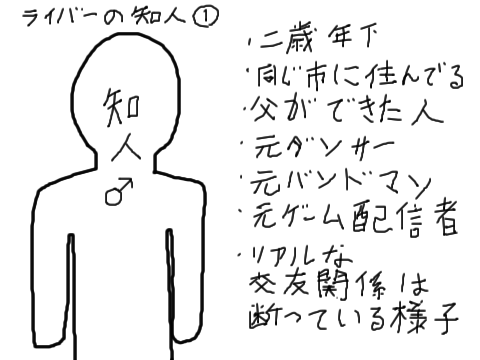 ライバーの知人①
知
人
♂
・二歳年下
・同じ市に住んでる
・父ができた人
・元ダンサー
・元バンドマン
・元ゲーム配信者
・リアルな
交友関係は
断っている様子